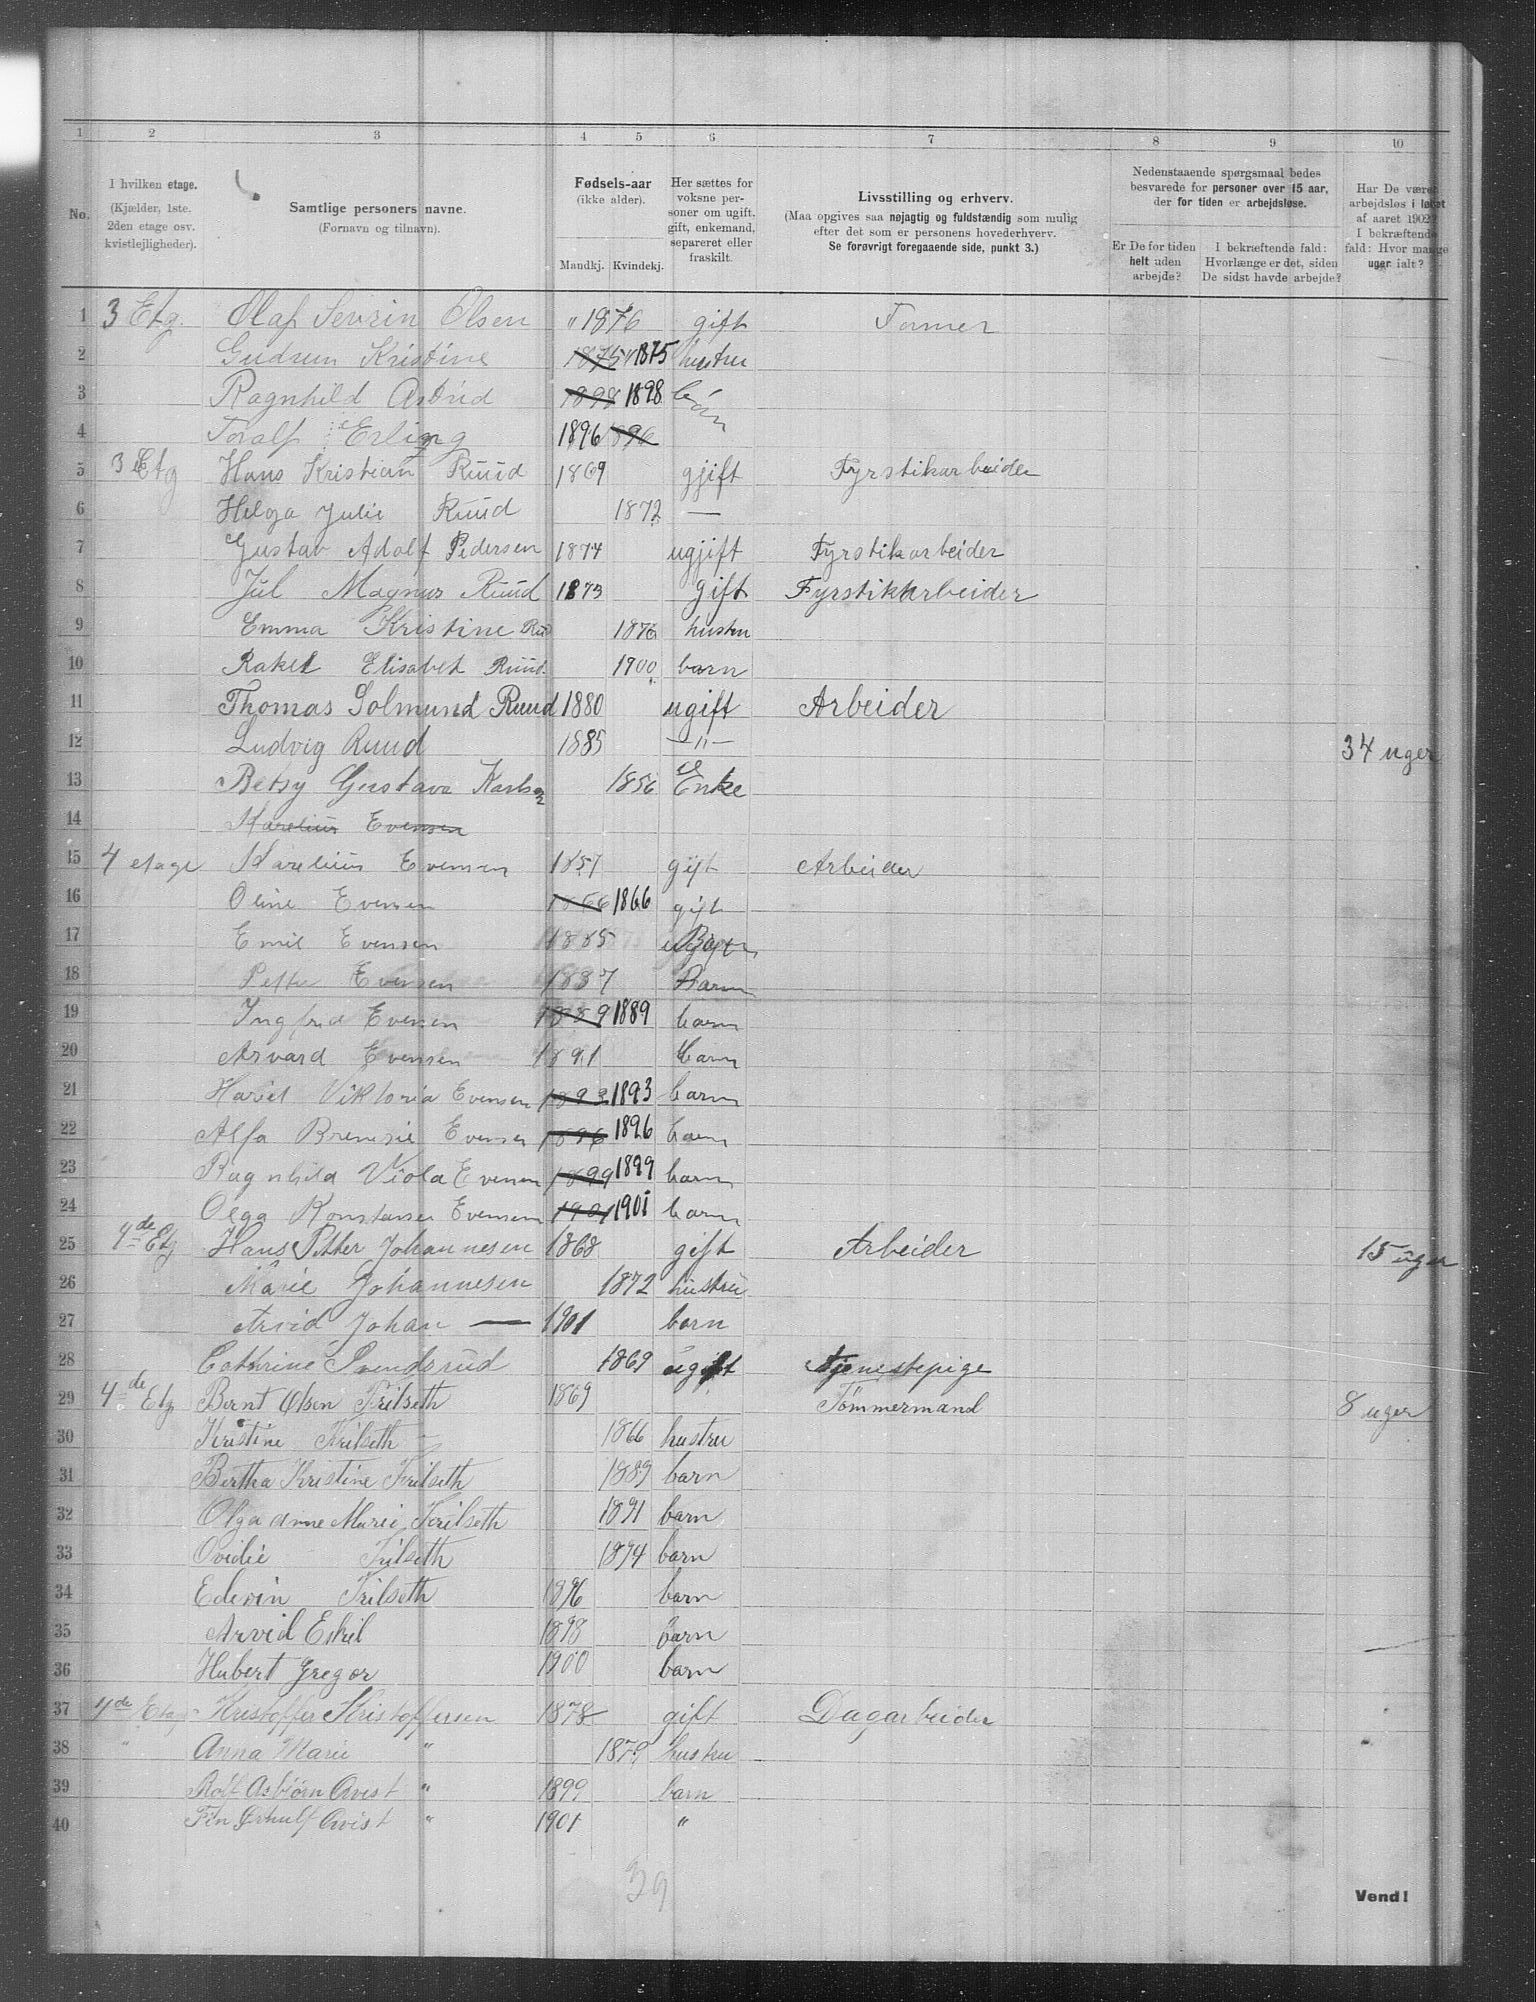 1 2 3 4 5 6 7 8 9 10
No. I hvilken etage. (Kjælder, 1ste. 2den etage osv. kvistlejligheder).
Samtlige personers navne. (Fornavn og tilnavn).
Fødsels-aar (ikke alder). Mandkj. Kvindekj.
Her sættes for voksne personer om ugift, gift, enkemand, separeret eller fraskilt.
Livsstilling og erhverv. (Maa opgives saa nøjagtig og fuldstændig som mulig efter det som er personens hovederhverv. Se forøvrigt foregaaende side, punkt 3.)
Nedenstaaende spørgsmaal bedes besvarede for personer over 15 aar, der for tiden er arbejdsløse.
Er De for tiden helt uden arbejde?
I bekræftende fald: Hvorlænge er det, siden De sidst havde arbejde?
Har De været arbejdsløs i løbet af aaret 1902? I bekræftende fald: Hvor mange uger ialt?
1 3 Etg. Olaf Sevrin Olsen " 1876 gift Former
2 Gudrun Kristine 1875 1875 hustru
3 Ragnhild Astrid 1898 1898 barn
4 Toralf Erling 1896 896
5 3 Etg Hans Kristian Ruud 1869 gjift Fyrstikarbeider
6 Helga Julie Ruud 1872 —
7 Gustav Adolf Pedersen 1874 ugjift Fyrstikarbeider
8 Jul Magnus Ruud 1873 gift Fyrstikkarbeider
9 Emma Kristine Ruud 1876 hustru
10 Rakel Elisabet Ruud. 1900 barn
11 Thomas Solmund Ruud 1880 ugift Arbeider
12 Ludvig Ruud 1885 —"— 34 uger
13 Betsy Gustava Karlsen 1856 Enke
14 Karelius Evensen
15 4 etage Karelius Evensen 1857 gift Arbeider
16 Oline Evensen 1866 1866 gift
17 Emil Evensen 1885 Barn
18 Petter Evensen 1887 Barn
19 Ingfrid Evensen 1889 1889 barn
20 Arvard Evensen 1891 barn
21 Hariet Viktoria Evensen 1893 1893 barn
22 Alfa Evensen 1896 1896 barn
23 Ragnhild Viola Evensen 1899 1899 barn
24 Olga Konstanse Evensen 1901 1901 barn
25 4de Etg Hans Petter Johannesen 1868 gift Arbeider 15 uger
26 Marie Johannesen 1872 hustru
27 Arvid Johan — 1901 barn
28 Cathrine Svendsrud 1869 ugift Tjenestepige
29 4de Etg Bernt Olsen Frilseth 1869 Tømmermand 8 uger
30 Kristine Frilseth 1866 hustru
31 Bertha Kristine Frilseth 1889 barn
32 Olga Anne Marie Frilseth 1891 barn
33 Ovidie Frilseth 1894 barn
34 Edevin Frilseth 1896 barn
35 Arvid Eskil 1898 barn
36 Hubert Gregor 1900 barn
37 4de Etag Kristoffer Kristoffersen 1878 gift Dagarbeider
38 " Anna Marie " 1879 hustru
39 Rolf Asbjørn Qvist " 1899 barn
40 Fin Qvist " 1901 "
39
Vend!